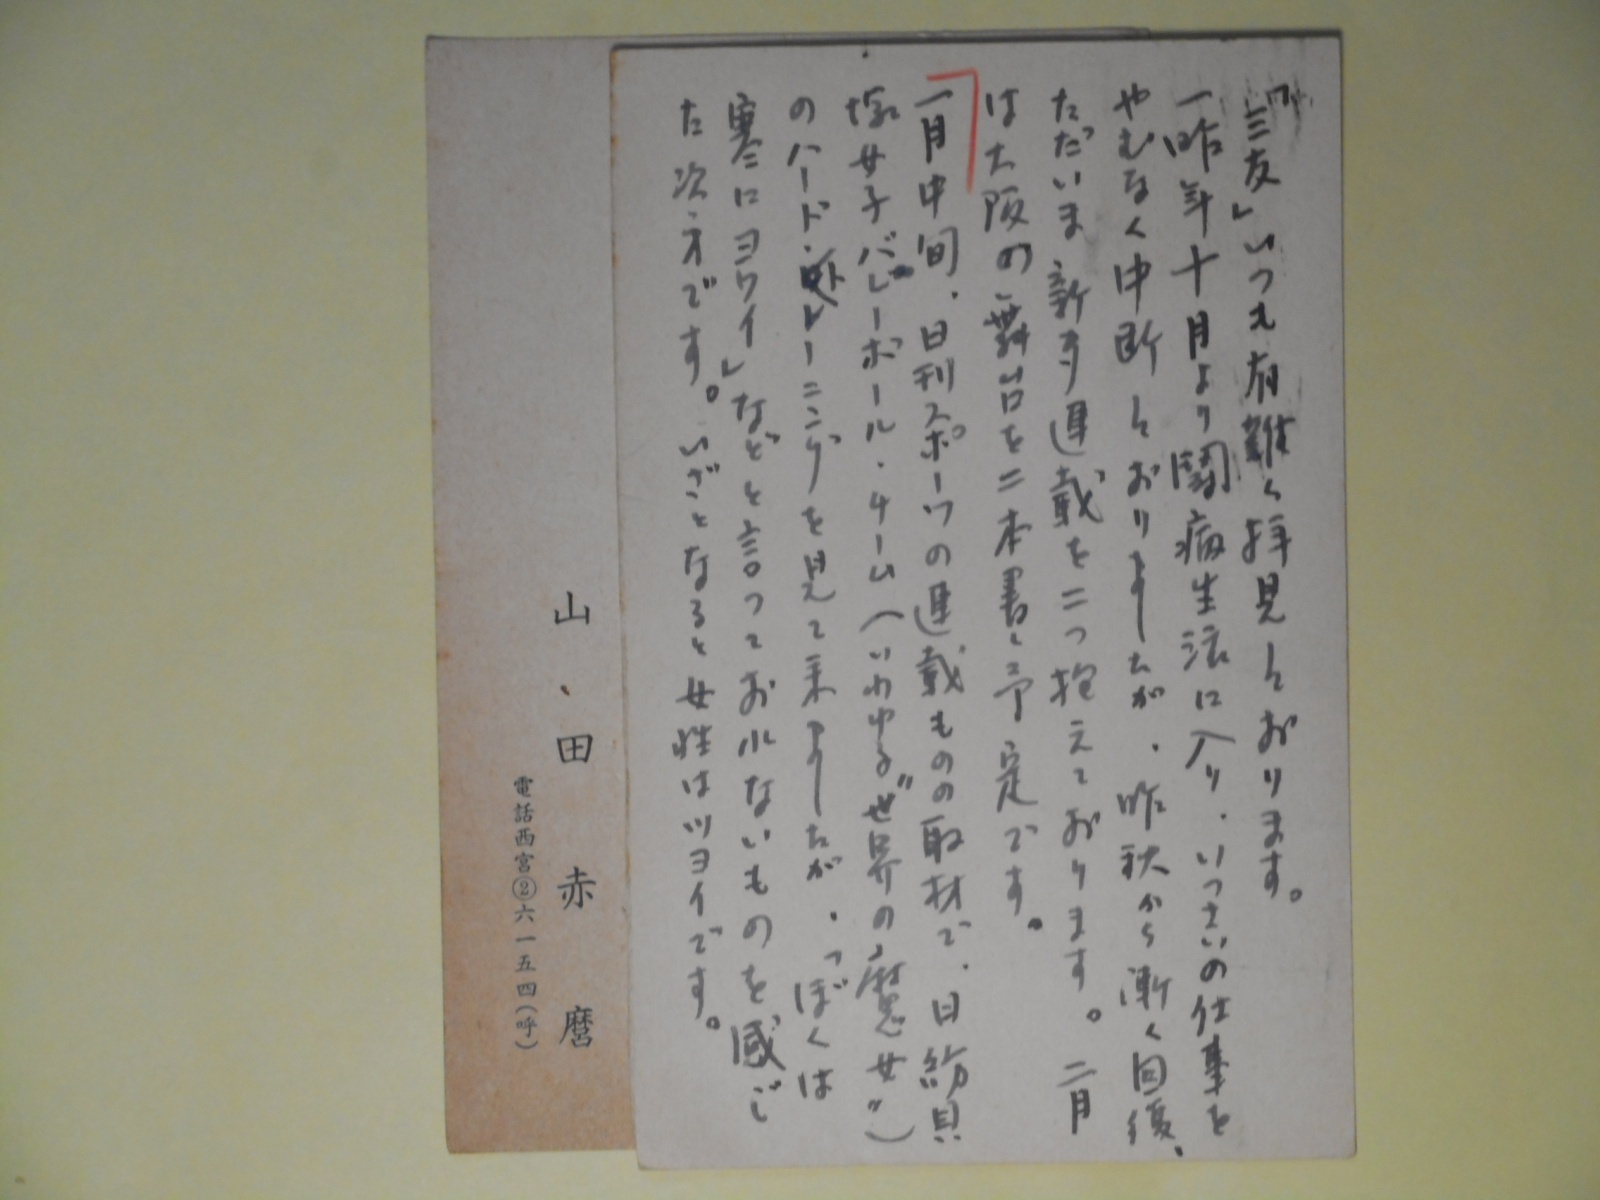 「三友」いつも有難く拝見しております。
一昨年十月より闘病生活に入り、いっさいの仕事を
やむなく中断しておりましたが、昨秋から漸く回復、
ただいま新聞連載を二つ抱えております。二月
は大阪の舞台を二本書く予定です。
一月中旬、日刊スポーツの連載ものの取材で、日紡貝
塚女子バレーボール・チーム(いわゆる〝世界の魔女〟)
のハード・トレーニングを見て来ましたが、「ぼくは
寒サニヨワイ」などと言っておれないものを感じ
た次オです。いざとなると女性はツヨイです。
山田赤麿
電話西宮②六一五四(呼)